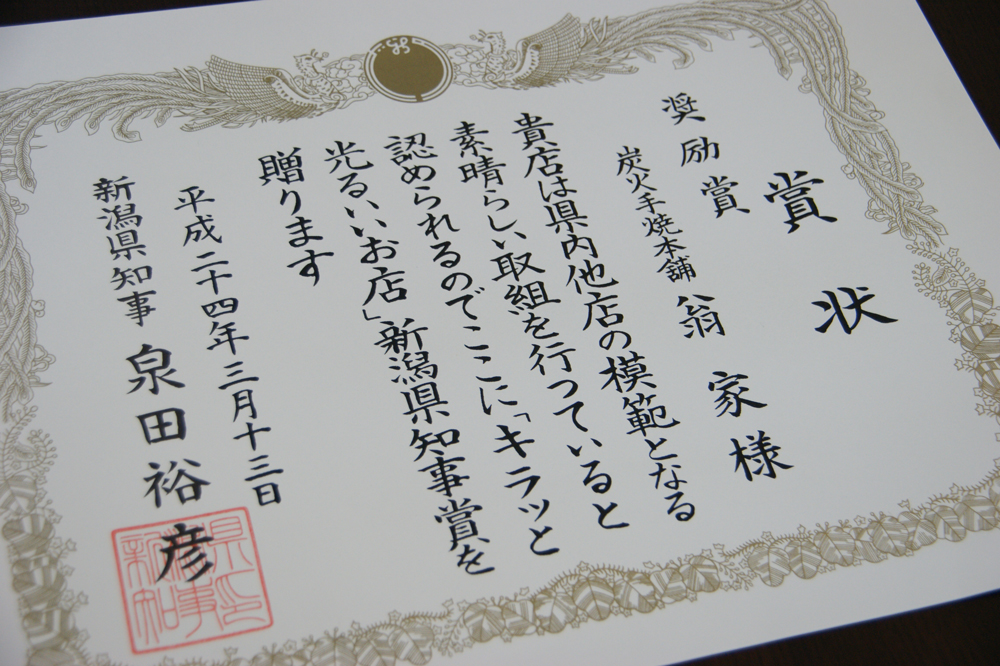 賞状
奨励賞
炭火手焼本舗 翁家様
貴店は県内他店の模範となる
素晴らしい取組を行っていると
認められるのでここに「キラッと
光るいいお店」新潟県知事賞を
贈ります
平成二十四年三月十三日
新潟県知事 泉田裕彦
新潟県知事之印